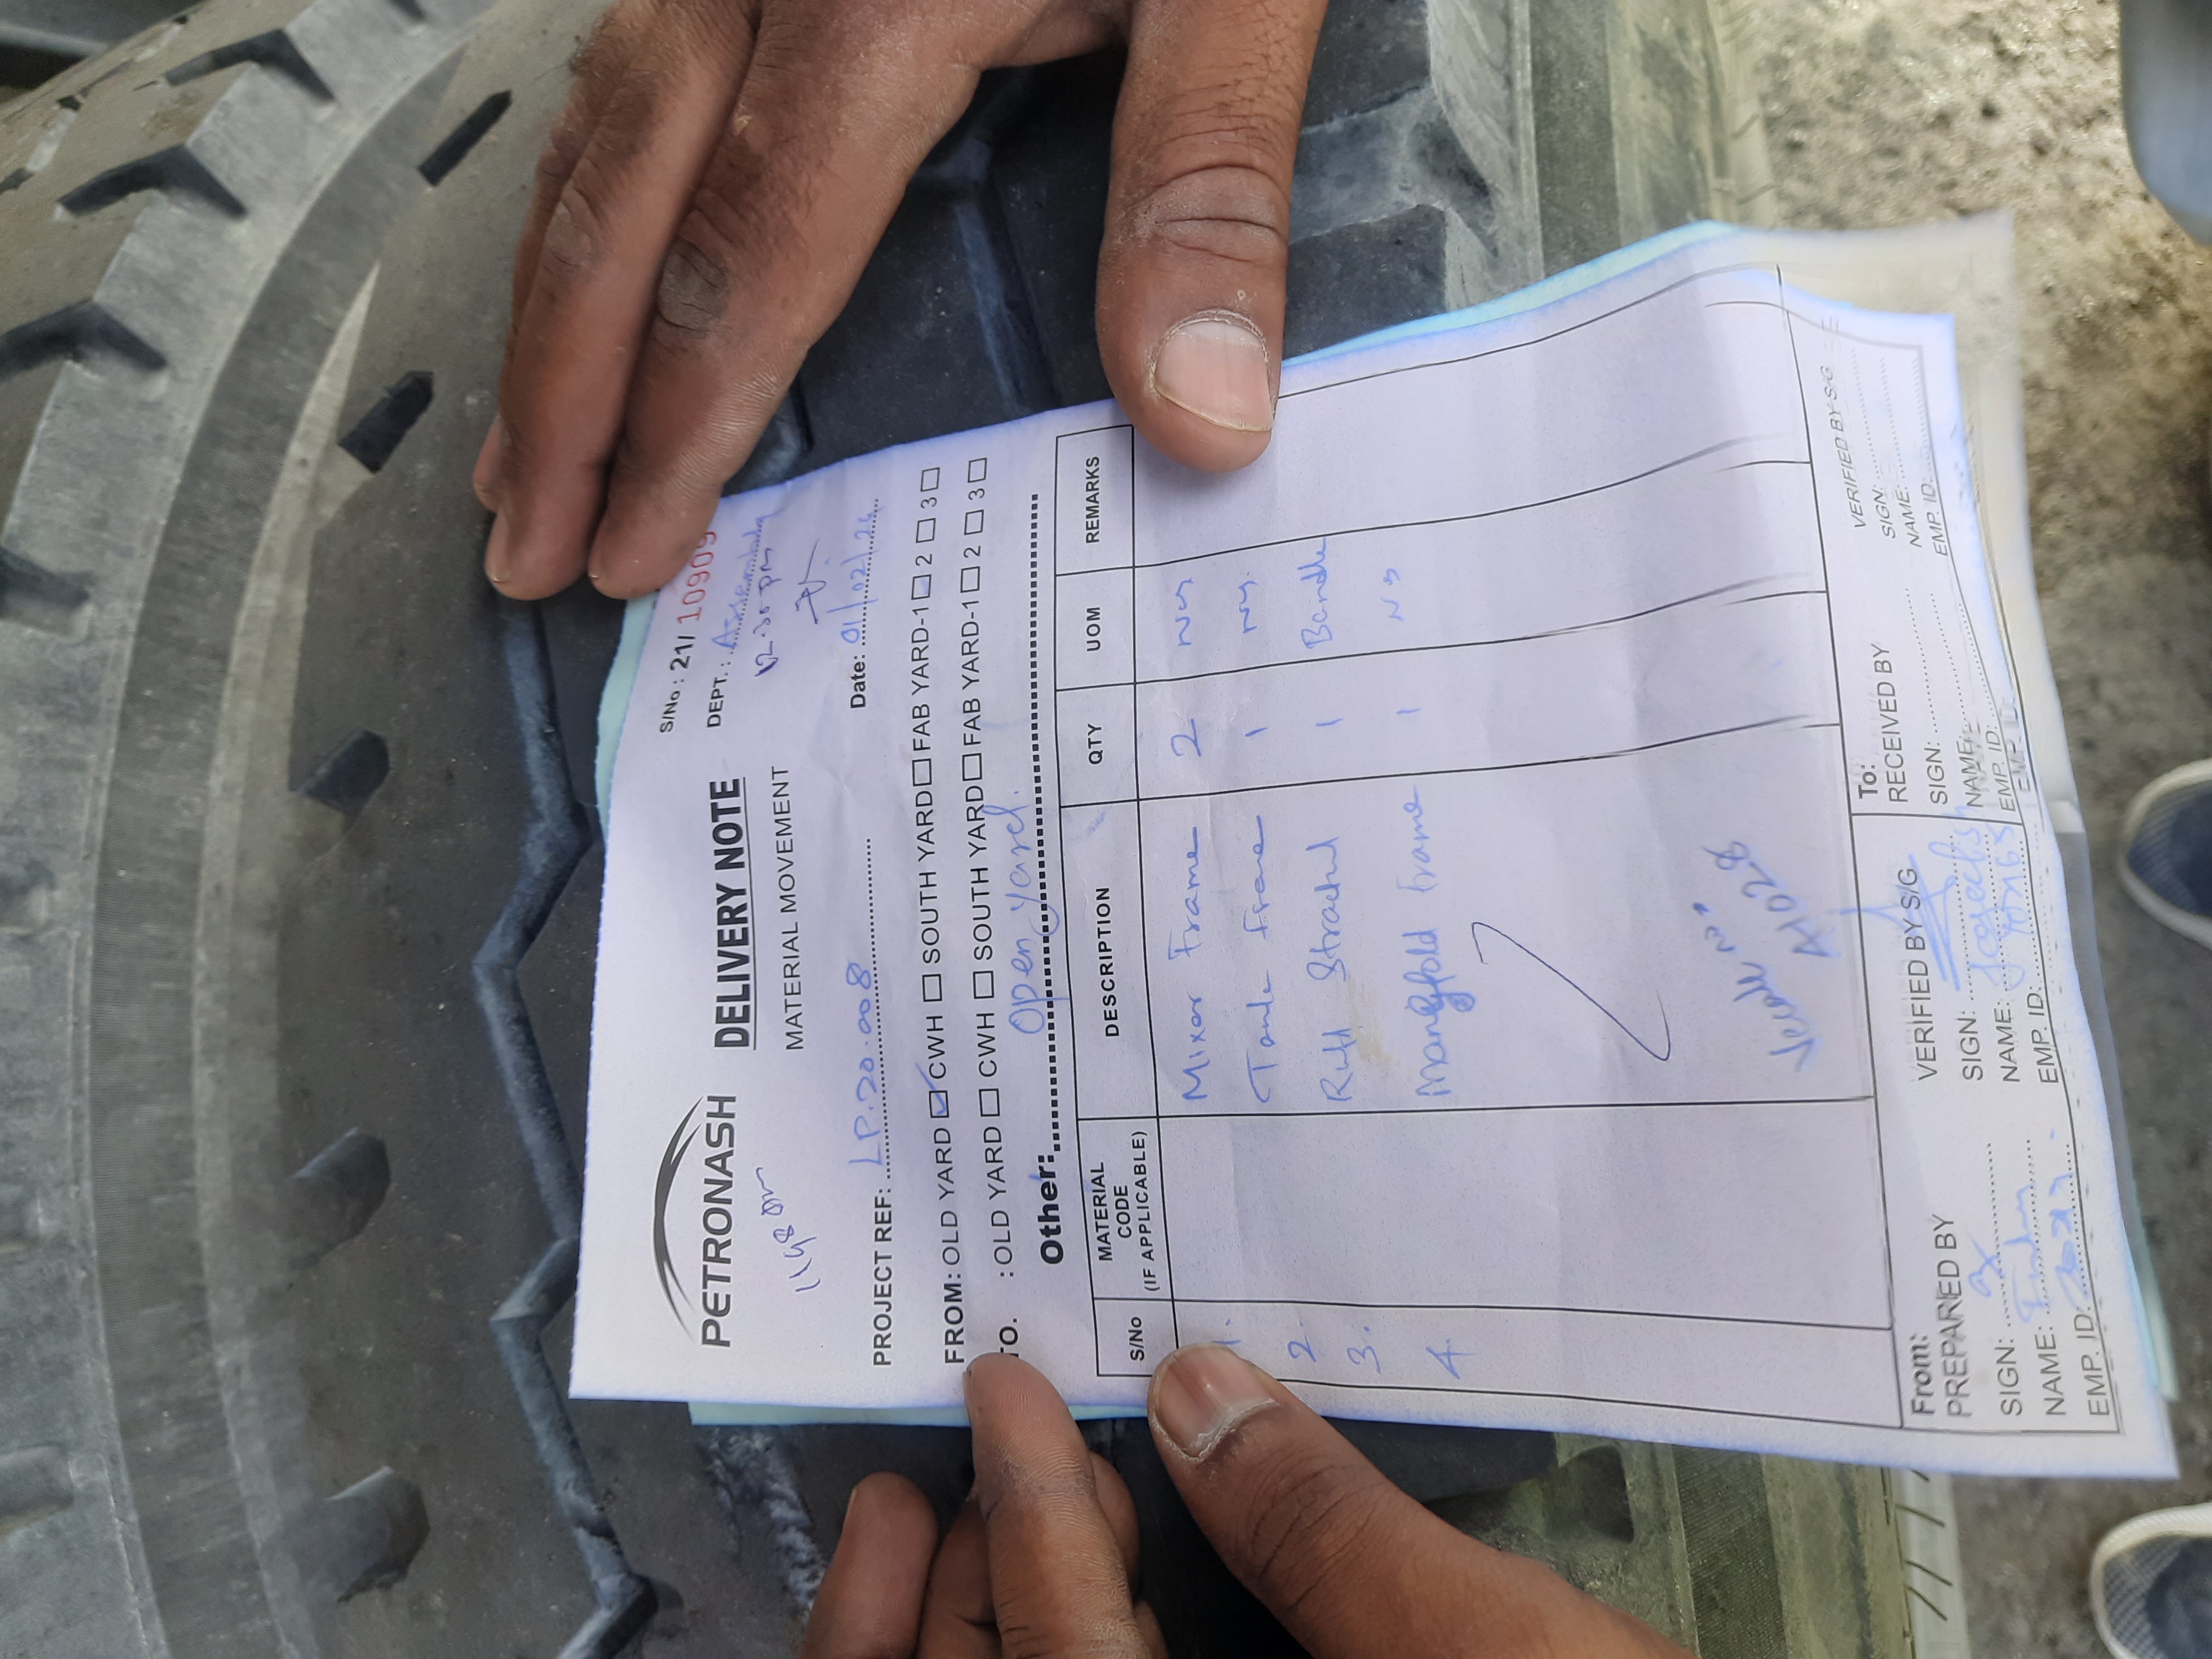 PETRONASH
DELIVERY NOTE
MATERIAL MOVEMENT
S/No : 21/ 10909
DEPT. : Assembly
12.30 pm
PROJECT REF: LP.20.008
Date: 01/02/24
FROM: OLD YARD CWH SOUTH YARD FAB YARD-1 2 3
TO. : OLD YARD CWH SOUTH YARD FAB YARD-1 2 3
Other: Open yard.
S/No MATERIAL CODE (IF APPLICABLE) DESCRIPTION QTY UOM REMARKS
1. Mixer Frame 2 Nos
2. Tank Frame 1 Nos.
3. 1 Bandle
4. Manifold Frame 1 Nos
Vecale no:
A1028
From:
PREPARED BY
SIGN:
NAME:
EMP. ID:
VERIFIED BY S/G
SIGN:
NAME:
EMP. ID:
To:
RECEIVED BY
SIGN:
NAME:
EMP. ID:
VERIFIED BY S/G
SIGN:
NAME:
EMP. ID: